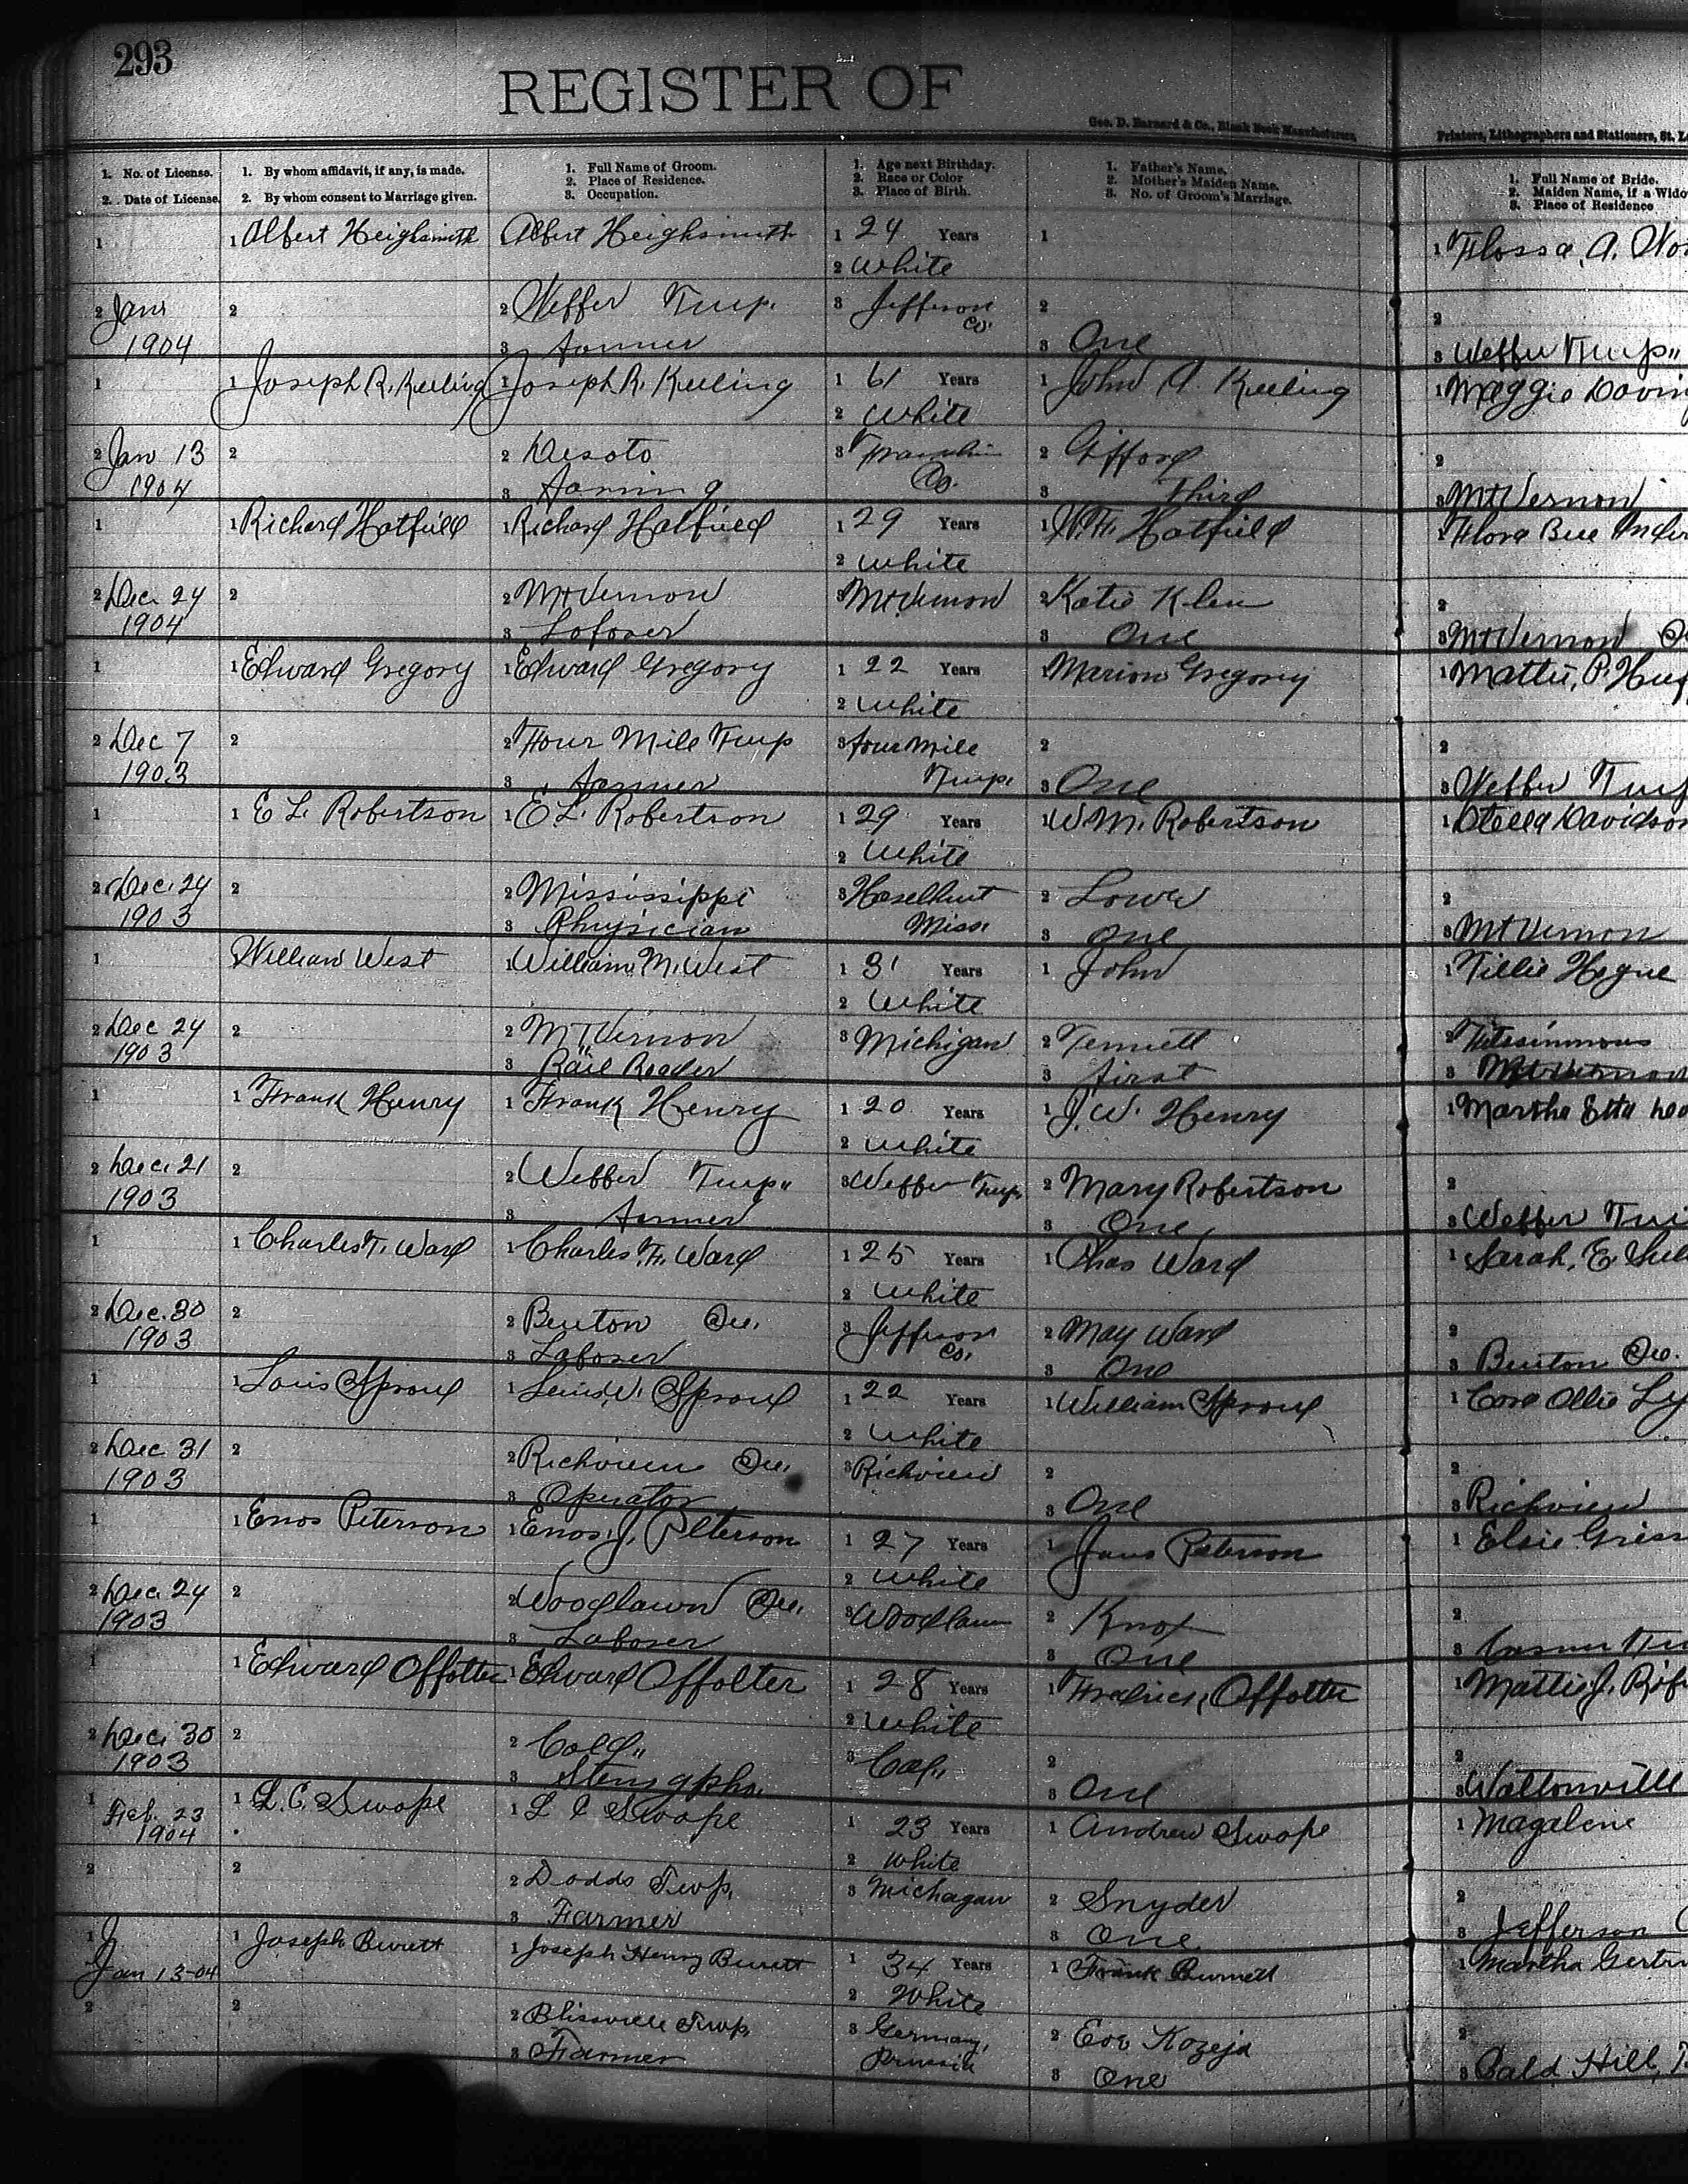 293
REGISTER OF
Geo. D. Barnard & Co., Blank Book Manufacturers,
Printers, Lithographers and Stationers, St. L
1. No. of License.
2. Date of License.
1. By whom affidavit, if any, is made.
2. By whom consent to Marriage given.
1. Full Name of Groom.
2. Place of Residence.
3. Occupation.
1. Age next Birthday.
2. Race or Color
3. Place of Birth.
1. Father's Name.
2. Mother's Maiden Name.
3. No. of Groom's Marriage.
1. Full Name of Bride.
2. Maiden Name, if a Wido
3. Place of Residence
1 1 Albert Heighsmith Albert Heighsmith 1 24 Years 1 1 Flossa, A. Wo
2 White
2 Jan 2 2 Webber Twp. 3 Jefferson 2 2
Co.
1904 3 Farmer 3 One 3 Webber Twp"
1 1 Joseph R. Keeling 1 Joseph R. Keeling 1 61 Years 1 John A. Keeling 1 Maggie Davin
2 White
2 Jan 13 2 2 Desoto 3 Franklin 2 Gifford 2
1904 3 Farming Co. 3 Third 3 Mt Vernon
1 1 Richard Hatfield 1 Richard Hatfield 1 29 Years 1 Hatfield 1 Flora Bee Ander
2 White
2 Dec. 24 2 2 Mt Vernon 3 Mt Vernon 2 Katie Klein 2
1904 3 Laborer 3 One 3 Mt Vernon
1 1 Edward Gregory 1 Edward Gregory 1 22 Years 1 Marion Gregory 1 Mattie, P. Hu
2 White
2 Dec 7 2 2 Four Mile Twp 3 four Mile 2 2
1903 3 Farmer Twp. 3 One 3 Webber Twp
1 1 E L. Robertson 1 E L. Robertson 1 29 Years 1 W M. Robertson 1 Stella Davidson
2 White
2 Dec. 24 2 2 Mississippi 3 Haselhurt 2 Lowe 2
1903 3 Physician Miss. 3 one 3 Mt Vernon
1 William West 1 William M. West 1 31 Years 1 John 1 Tillie Hogue
2 White
2 Dec 24 2 2 Mt Vernon 3 Michigan 2 Tennett 2 Fitssimmons
1903 3 Rail Roader 3 first 3 Mt Vernon
1 1 Frank Henry 1 Frank Henry 1 20 Years 1 J. W. Henry 1 Martha Etta
2 White
2 Dec. 21 2 2 Webber Twp" 3 Webber Twp 2 Mary Robertson 2
1903 3 Farmer 3 One 3 Webber
1 1 Charles F. Ward 1 Charles, F. Ward 1 25 Years 1 Chas Ward 1 Sarah, E.
2 White
2 Dec. 30 2 2 Benton Ills. 3 Jefferson 2 May Ward 2
1903 3 Laborer Co. 3 One 3 Benton Ills.
1 1 Louis Sproul 1 Louis W. Sproul 1 22 Years 1 William Sproul 1 Cora Ollie Ly
2 White
2 Dec 31 2 2 Richview Ills. 3 Richview 2 2
1903 3 Operator 3 One 3 Richview
1 1 Enos Peterson 1 Enos, J. Peterson 1 27 Years 1 Peterson 1 Elsie Griss
2 White
2 Dec. 24 2 2 Woodlawn Ills. 3 Woodlawn 2 Knox 2
1903 3 Laborer 3 One 3
1 1 Edward Offolter 1 Edward Offolter 1 28 Years 1 Fredrick Offolter 1 Mattie J.
2 White
2 Dec. 30 2 2 3 2 2
1903 3 3 One 3 Waltonville
1 Feb. 23 1 L. C. Swope 1 L C Swope 1 23 Years 1 Andrew Swope 1 Magalene
1904 2 White
2 2 2 Dodds Twp. 3 Michagan 2 Snyder 2
3 Farmer 3 One. 3 Jefferson
1 1 Joseph Burett 1 Joseph Henry Burett 1 34 Years 1 Frank Burnett 1 Martha Gertru
Jan 13-04 2 White
2 2 2 Blissville Twp. 3 Germany, 2 Eva Kozeja 2
3 Farmer Prussia 3 One 3 Bald Hill,